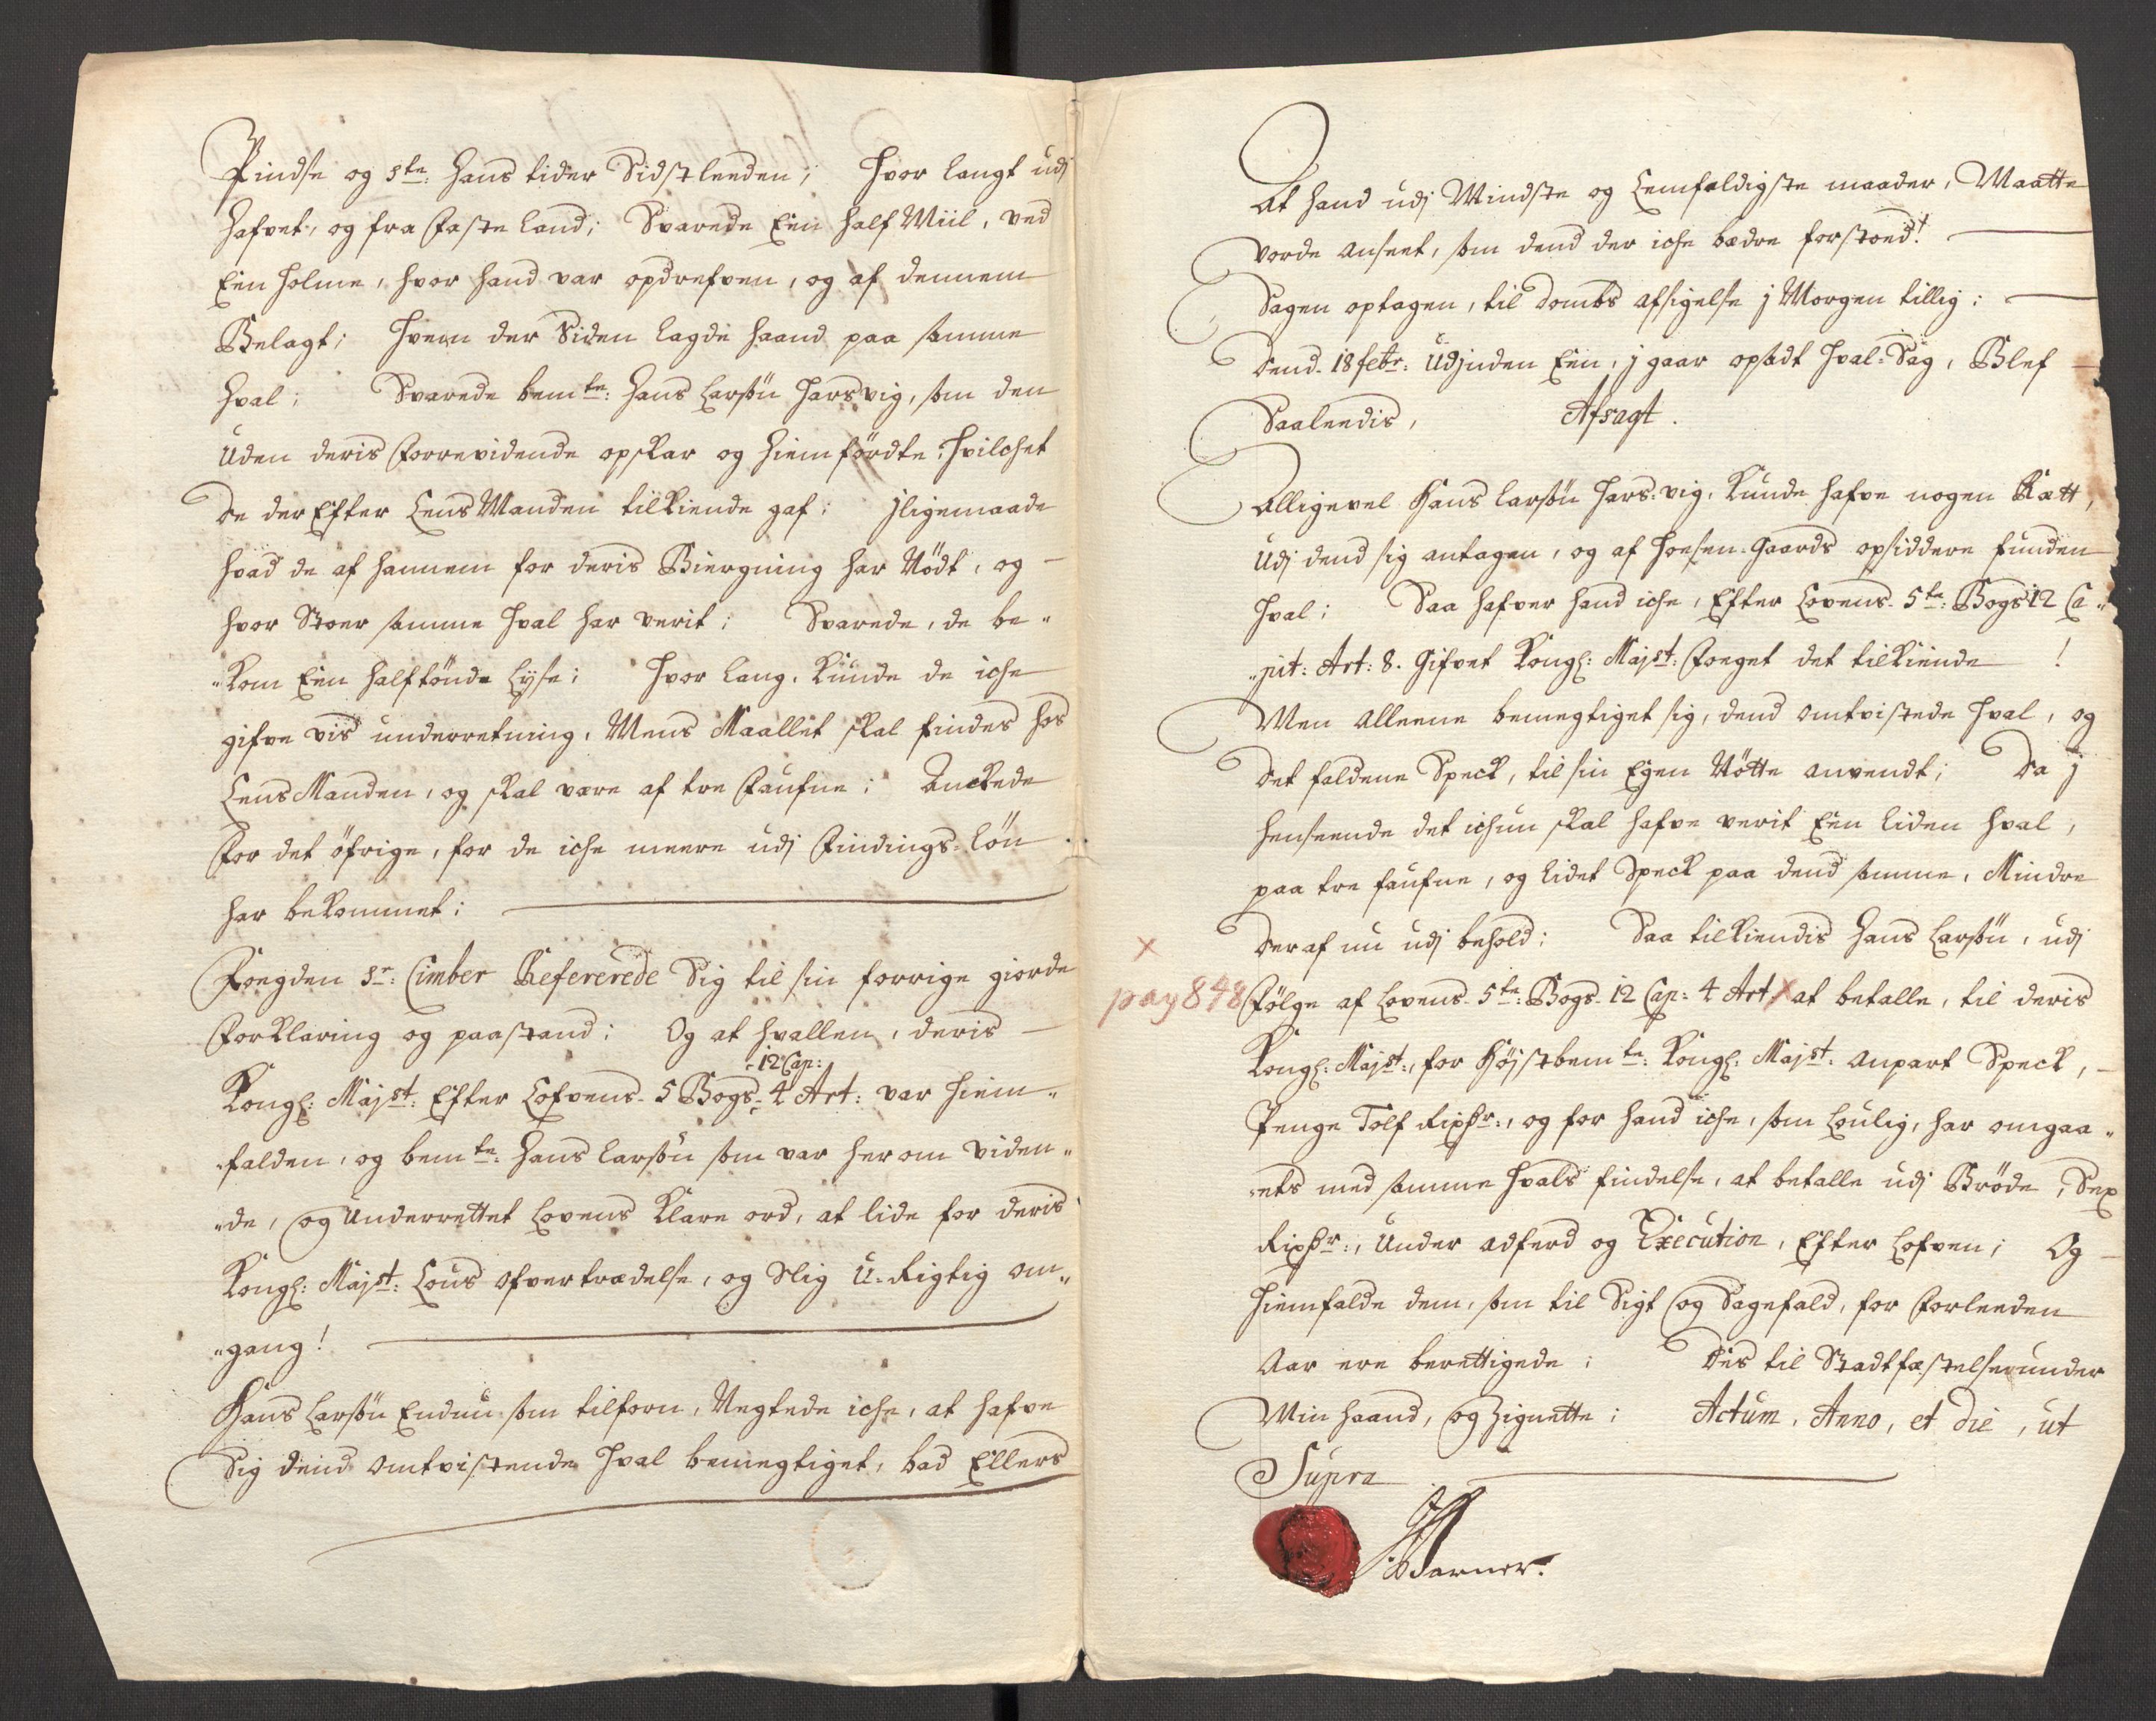 Pindse og Ste: Hans tider Sidstleeden; Hvor langt udj
Hafvet, og fra Faste land; Svarede Een half Miil, ved
Een Holme, hvor hand var opdrefven, og af dennem
Belagt; Hvem der Siden lagde haand paa samme
Hval; Svarede bemte: Hans Larssøn Harsvig, som den
uden deris Forrevidende opskar og hiemførdte; hvilchet
de der Efter LensManden tilkiende gaf; jligemaade
hvad de af hannem for deris Biergning har Nødt, og
hvor Stoer samme Hval har verit; Svarede, de be„
„kom Een half tønde Lyse; Hvor lang, Kunde de iche
gifve vis underretning, Mens Maallet skal findes hos
LensManden, og skal være af tre Faufne; Anckede
for det øfrige, for de iche meere udj Findings-Løn
har bekommet;
Fougden Sr: Cimber Refererede Sig til sin forrige giorde
Forklaring og paastand; Og at hvallen, deris
Kongl: Majst: Efter Lofvens 5 Bogs 12 Cap: 4 Art: var hiem„
„falden, og bemte: Hans Larssøn som var her om viden„
„de, og Underrettet Lovens klare ord, at lide for deris
Kongl: Majst: Lous ofvertrædelse, og Slig U-Rigtig om„
„gang!
Hans Larssøn Endnu som tilforn, Negtede iche, at hafve
Sig dend omtvistende Hval bemegtiget, bad Ellers
At hand udj Mindste og Lemfældigste maader, Maatte
vorde anseet, som dend der iche bædre forstoed!
Sagen optagen, til Dombs afsigelse j Morgen tillig:
Dend 18 febr: Udjnden Een, j gaar opsadt Hval-Sag, Blef
Saaleedis, Afsagt.
Alligevel Hans Larssøn Hars-vig, Kunde hafve nogen Rætt,
Udj dend sig antagen, og af Hoesen-Gaards opsiddere funden
Hval; Saa hafver hand iche, Efter Lovens 5te: Bogs 12 Ca„
„pit: Art: 8. Gifvet Kongl: Majst: Foeget det tilkiende!
Men alleene bemegtiget sig, dend omtvistede Hval, og
det faldene Speck, til sin Egen Nøtte anvendt; Da j
henseende det ichun skal hafve verit Een liden Hval,
paa tre faufne, og lidet Speck paa dend samme, Mindre
deraf nu udj behold; Saa tilkiendis Hans Larssøn, udj
x
pag 848 Følge af Lovens 5te: Bogs 12 Cap: 4 Art x at betalle, til deris
Kongl: Majst:, for Højstbemte: Kongl: Majst: anpart Speck,
Penge Tolf Rixdr:, og for hand iche, som Loulig, har omgaa„
„ets med samme Hvals findelse, at betalle udj Brøde, Sex
Rixdr:, Under adferd og Execution, Efter Lofven; Og
Hiemfalde dem, som til Sigt og Sagefald, for Forleeden
Aar ere berettigede; Des til Stadfæstelse under
Min haand, og Zignette; Actum, Anno, et die, ut
Supra
Warner.